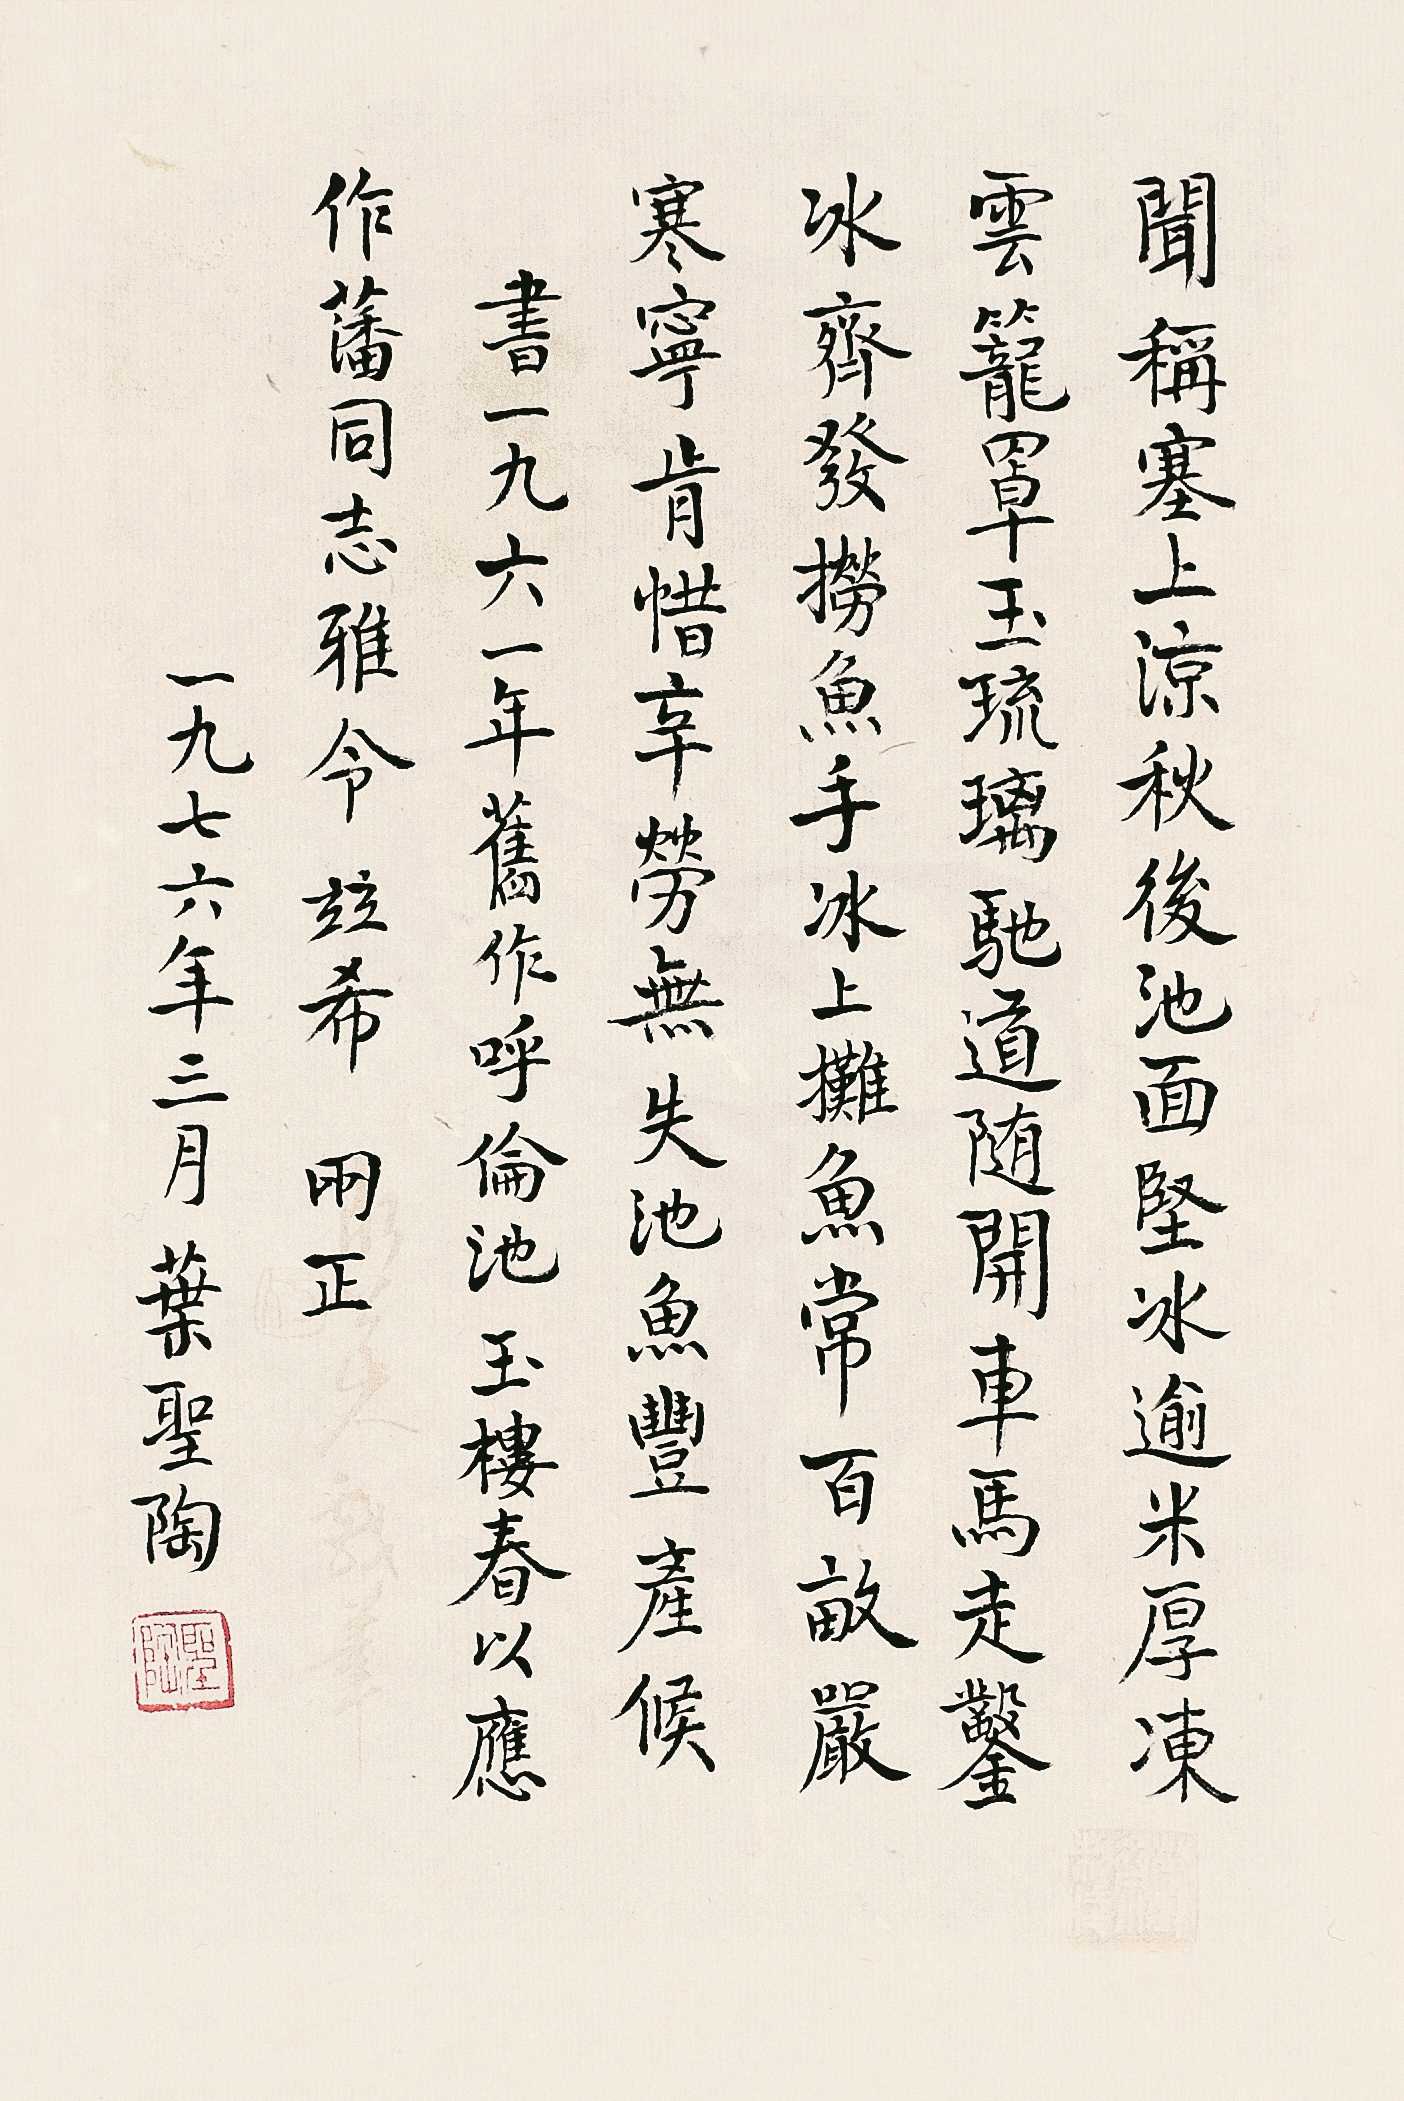 聞稱塞上涼秋後池面堅冰逾米厚凍
雲籠罩玉琉璃馳道随開車馬走鑿
冰齊發撈魚手冰上攤魚常百畝嚴
寒寧肯惜辛勞無失池魚豐產候
書一九六一年舊作呼倫池玉樓春以應
作藩同志雅令竝希 兩正
一九七六年三月 葉聖陶
聖陶